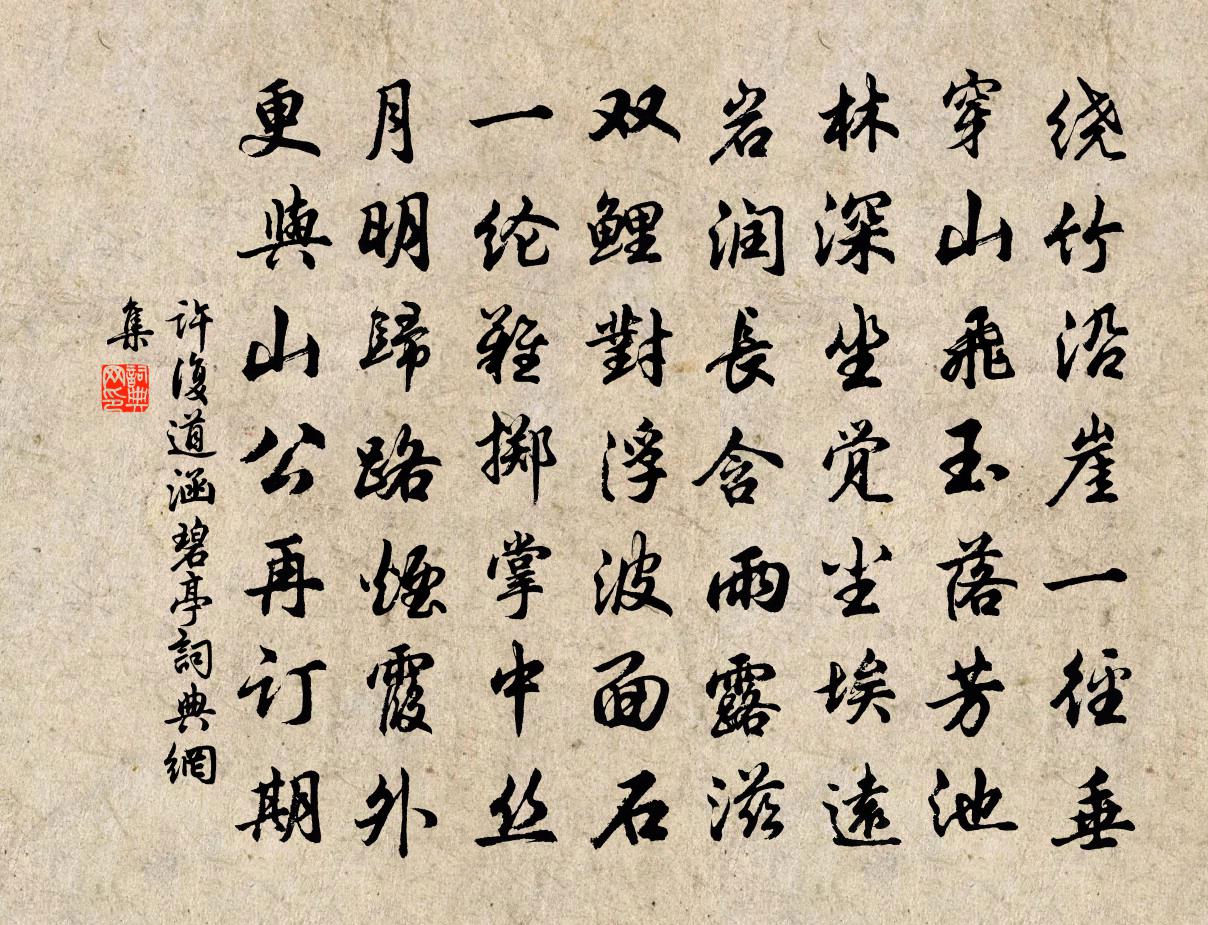 绕竹沿崖一径垂
穿山飛玉落芳池
林深坐觉尘埃遠
岩润長含雨露滋
双鲤對浮波面石
一纶难掷掌中丝
月明歸路煙霞外
更與山公再订期
許復道涵碧亭詞典網
集
詞典
网印